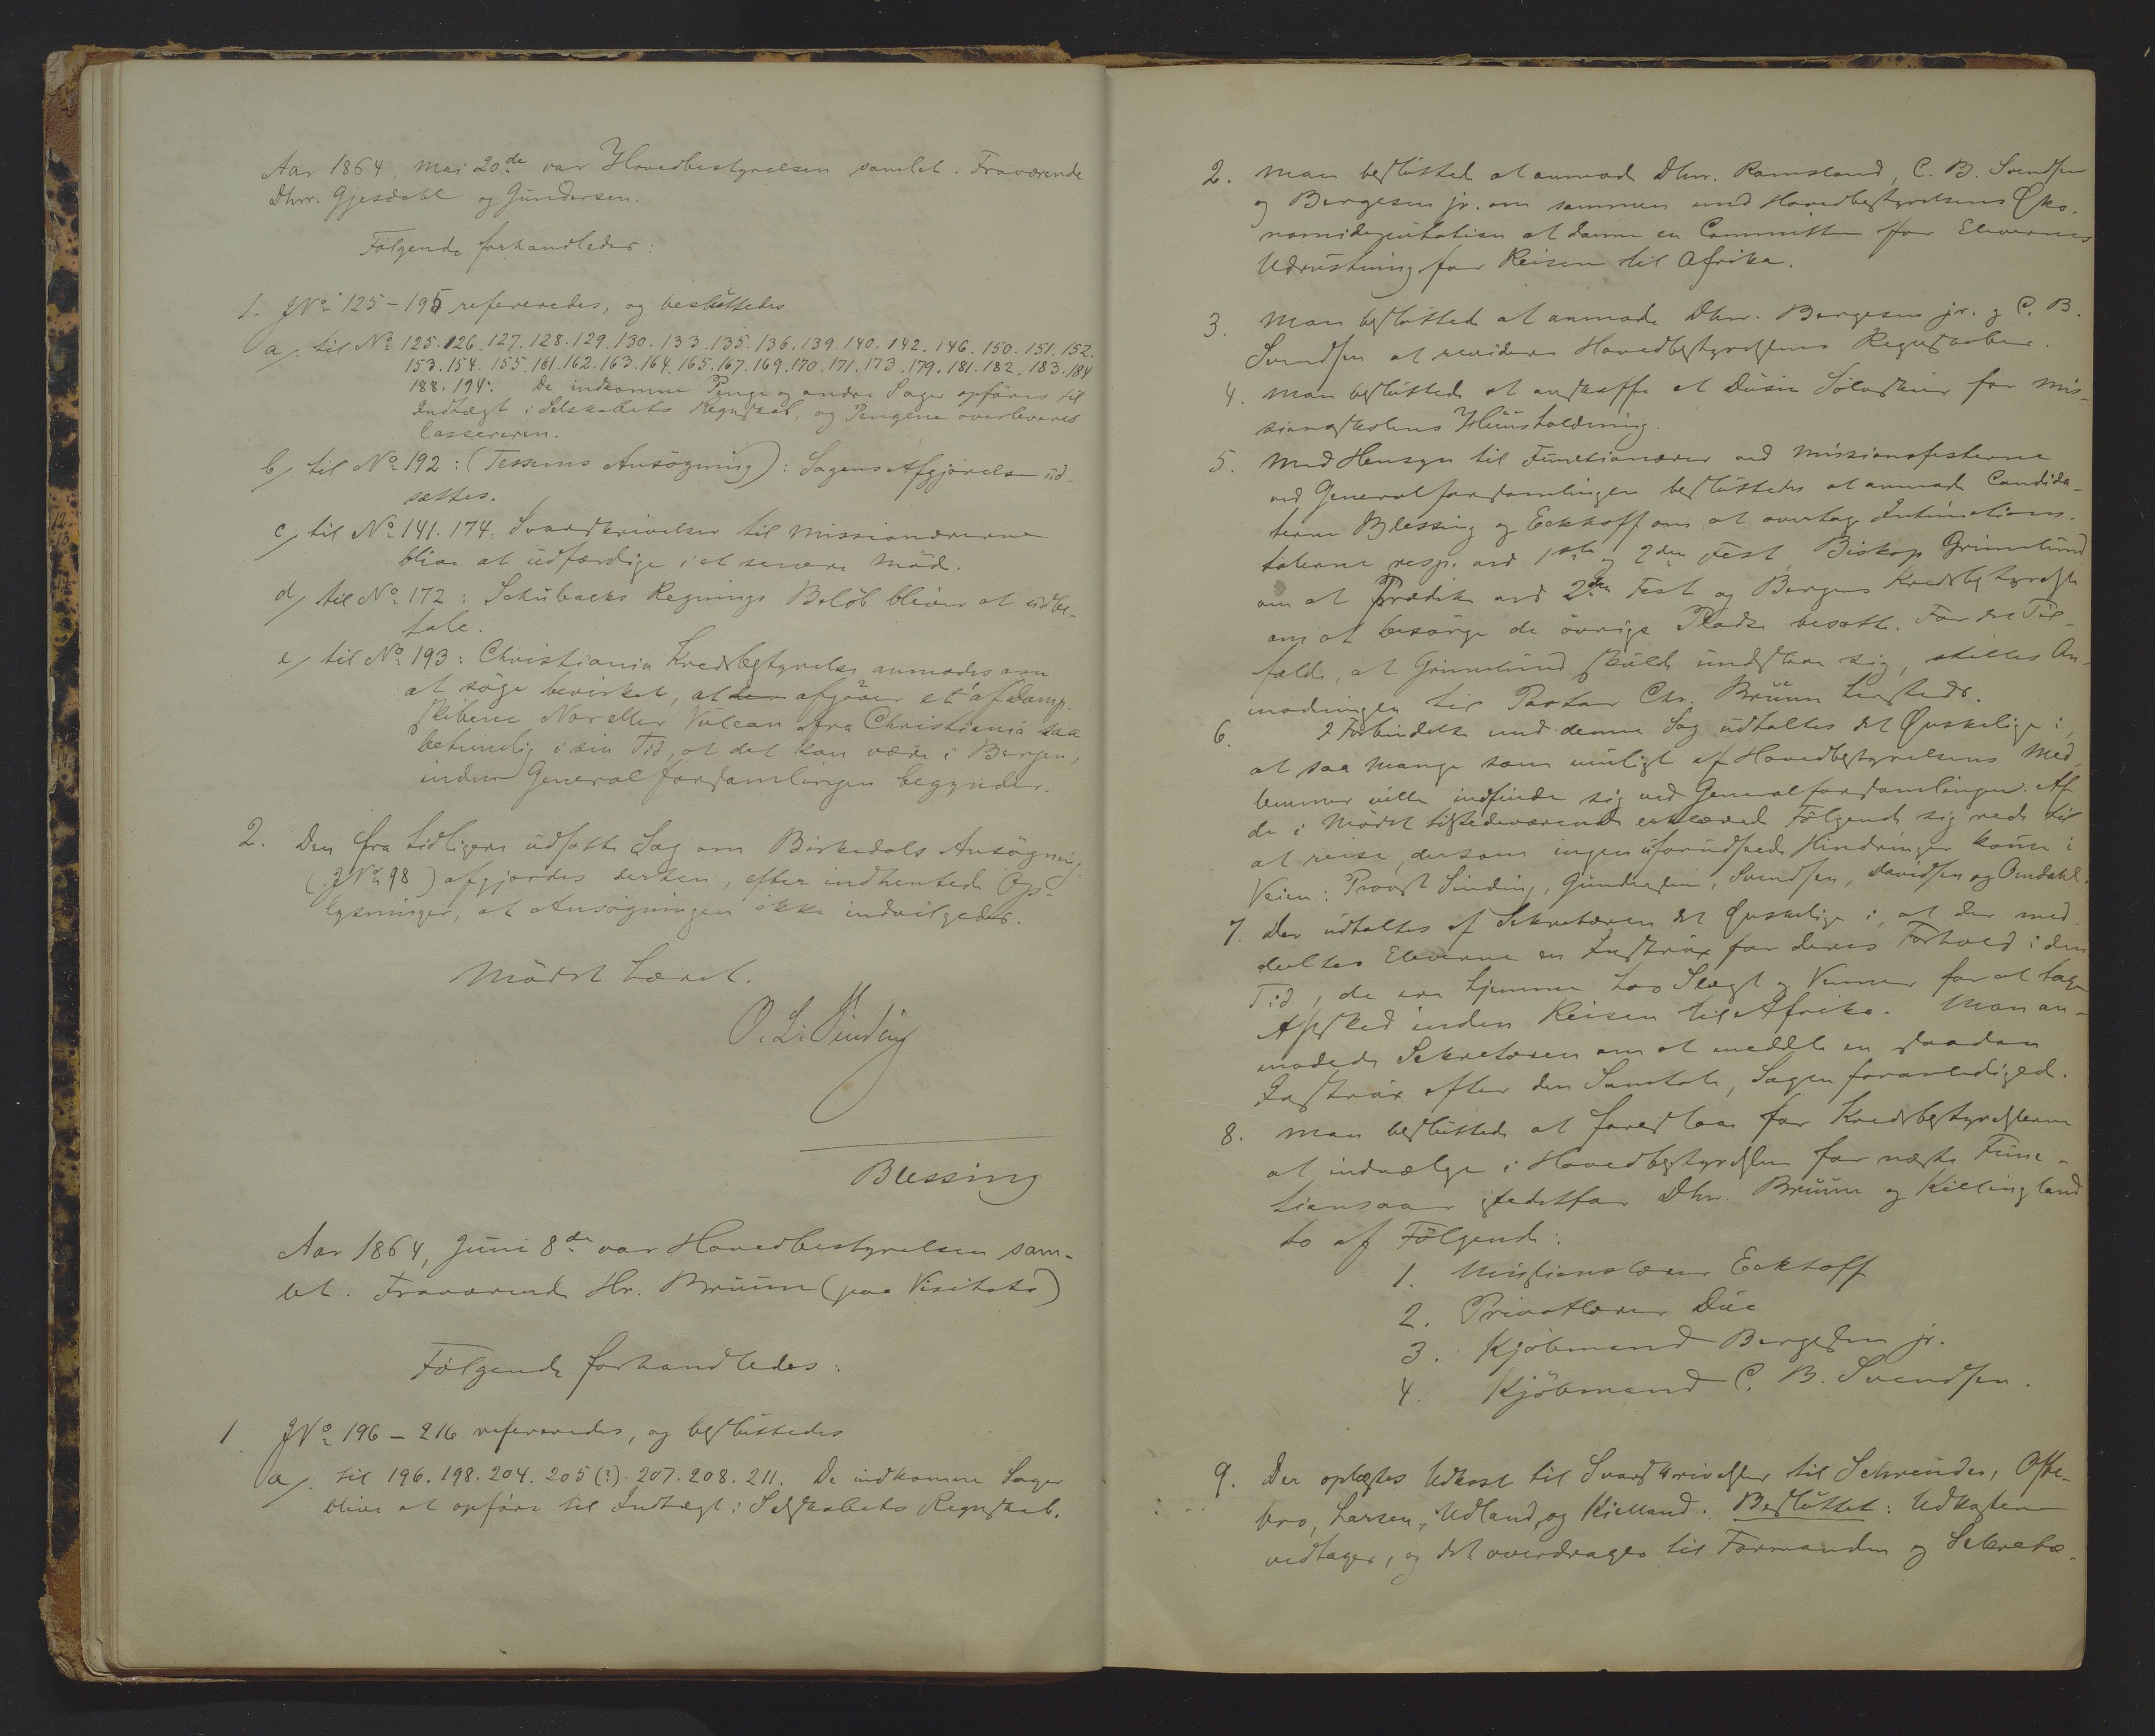 Aar 1864, Mai 20de var Hovedbestyrelsen samlet. Fraværende
Dhrr. Gjesdahl og Gundersen.
Følgende forhandledes:
1. JNo 125-195 refereredes, og besluttedes
a/. til No 125. 126. 127. 128. 129. 130. 133. 135. 136. 139. 140. 142. 146. 150. 151. 152.
153. 154. 155. 161. 162. 163. 164. 165. 167. 169. 170. 171. 173. 179. 181. 182. 183. 184
188. 194: De indkomne Penge og andre Sager opføres til
Indtægt i Selskabets Regnskab, og Pengene overleveres
Cassereren.
b/. til No 192: (Tessems Ansøgning): Sagens Afgjørelse ud-
sættes.
c/ til No 141. 174: Svarskrivelser til Missionærerne
blive at udfærdige i et senere Møde.
d/ til No 172: Schubacks Regnings Beløb bliver at udbe-
tale.
e/ til No 193: Christiania Kredsbestyrelse anmodes om
at søge bevirket, at afgaaer et af Damp-
skibene Nor eller Vulcan fra Christiania saa
betimelig i sin Tid, at det kan være i Bergen,
inden Generalforsamlingen begynder.
2. Den fra tidligere udsatte Sag om Birkedals Ansøgning
(JNo 98) afgjordes derhen, efter indhentede Op-
lysninger, at Ansøgningen ikke indvilgedes.
Mødet hævet.
O. L. Sinding
Blessing
Aar 1864, Juni 8de var Hovedbestyrelsen sam-
let. Fraværende Hr. Bruun (paa Visitats)
Følgende forhandledes:
1 JNo 196-216 refereredes, og besluttedes
a/. til 196. 198. 204. 205 (?). 207. 208. 211. De indkomne Sager
blive at opføre til Indtægt i Selskabets Regnskab.
2. Man besluttede at anmode Dhrr. Ramsland, C. B. Svendsen
og Bergesen jr. om sammen med Hovedbestyrelsens Øko-
nomideputation at danne en Committee for Elevernes
Udrustning for Reisen til Afrika.
3. Man besluttede at anmode Dhrr. Bergesen jr. og C. B.
Svendsen at revidere Hovedbestyrelsens Regnskaber.
4. Man besluttede at anskaffe et Dusin Sølvskeer for Mis-
sionsskolens Huusholdning.
5. Med Hensyn til Functionærer ved Missionsfesterne
ved Generalforsamlingen besluttedes at anmode Candida-
terne Blessing og Eckhoff om at overtage Intimations-
talerne resp. ved 1ste og 2den Fest, Biskop Grimelund
om at prædike ved 2den Fest og Bergens Kredsbestyrelse
om at besørge de øvrige Pladse besatte. For det Til-
fælde, at Grimelund skulde undslaae sig, stilles An-
modningen til Pastor Chr. Bruun .
6. I Forbindelse med denne Sag udtaltes det Ønskelige i,
at saa mange som muligt af Hovedbestyrelsens Med-
lemmer ville indfinde sig ved Generalforsamlingen. Af
de i Mødet tilstedeværende erklærede Følgende sig rede til
at reise, dersom ingen uforudseede Hindringer komme i
Veien: Provst Sinding, Gundersen, Svendsen, Davidsen og Omdahl.
7. Der udtaltes af Sekretæren det Ønskelige i, at der med-
deeltes Eleverne en Instrux for deres Forhold i den
Tid, de ere hjemme hos Slægt og Venner for at tage
Afsked inden Reisen til Afrika. Man an-
modede Sekretæren om at meddele en saadan
Instrux efter den Samtale, Sagen foranledigede.
8. Man besluttede at foreslaae for Kredsbestyrelserne
at indvælge i Hovedbestyrelsen for næste Func-
tionsaar istedetfor Dhrr. Bruun og Kiellingland
to af Følgende:
1. Missionslærer Eckhoff
2. Privatlærer Due
3. Kjøbmand Bergesen jr.
4. Kjøbmand C. B. Svendsen.
9. Der oplæstes Udkast til Svarskrivelser til Schreuder, Ofte-
bro, Larsen, Udland, og Kielland. Besluttet: Udkastene
vedtages, og det overdrages til Formanden og Sekretæ-